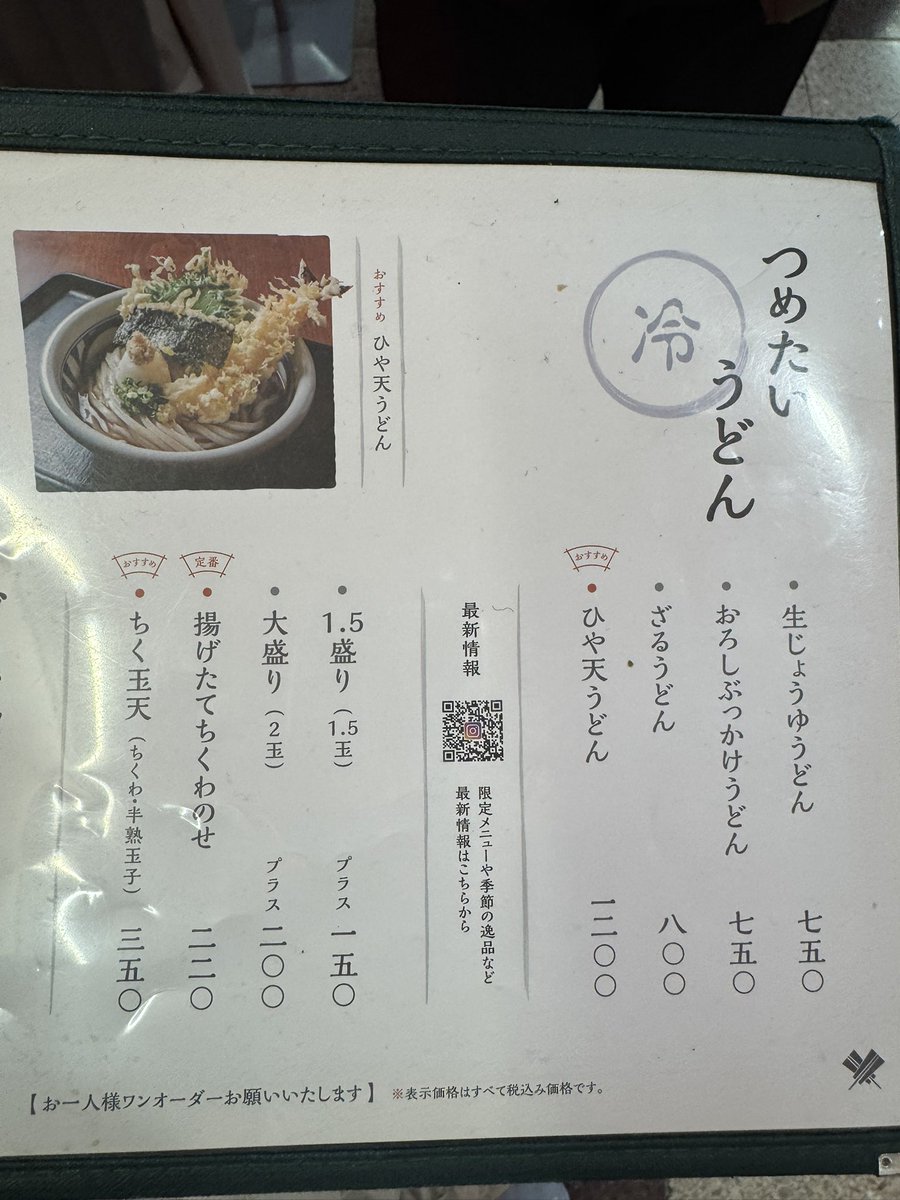 つめたい
うどん
冷
おすすめ ひや天うどん
生じょうゆうどん 七五〇
おろしぶっかけうどん 七五〇
ざるうどん 八〇〇
おすすめ
ひや天うどん 一二〇〇
最新情報
限定メニューや季節の逸品など
最新情報はこちらから
1.5盛り（1.5玉） プラス 一五〇
大盛り（2玉） プラス 二〇〇
定番
揚げたてちくわのせ 二二〇
おすすめ
ちく玉天（ちくわ・半熟玉子） 三五〇
【お一人様ワンオーダーお願いいたします】 ※表示価格はすべて税込み価格です。